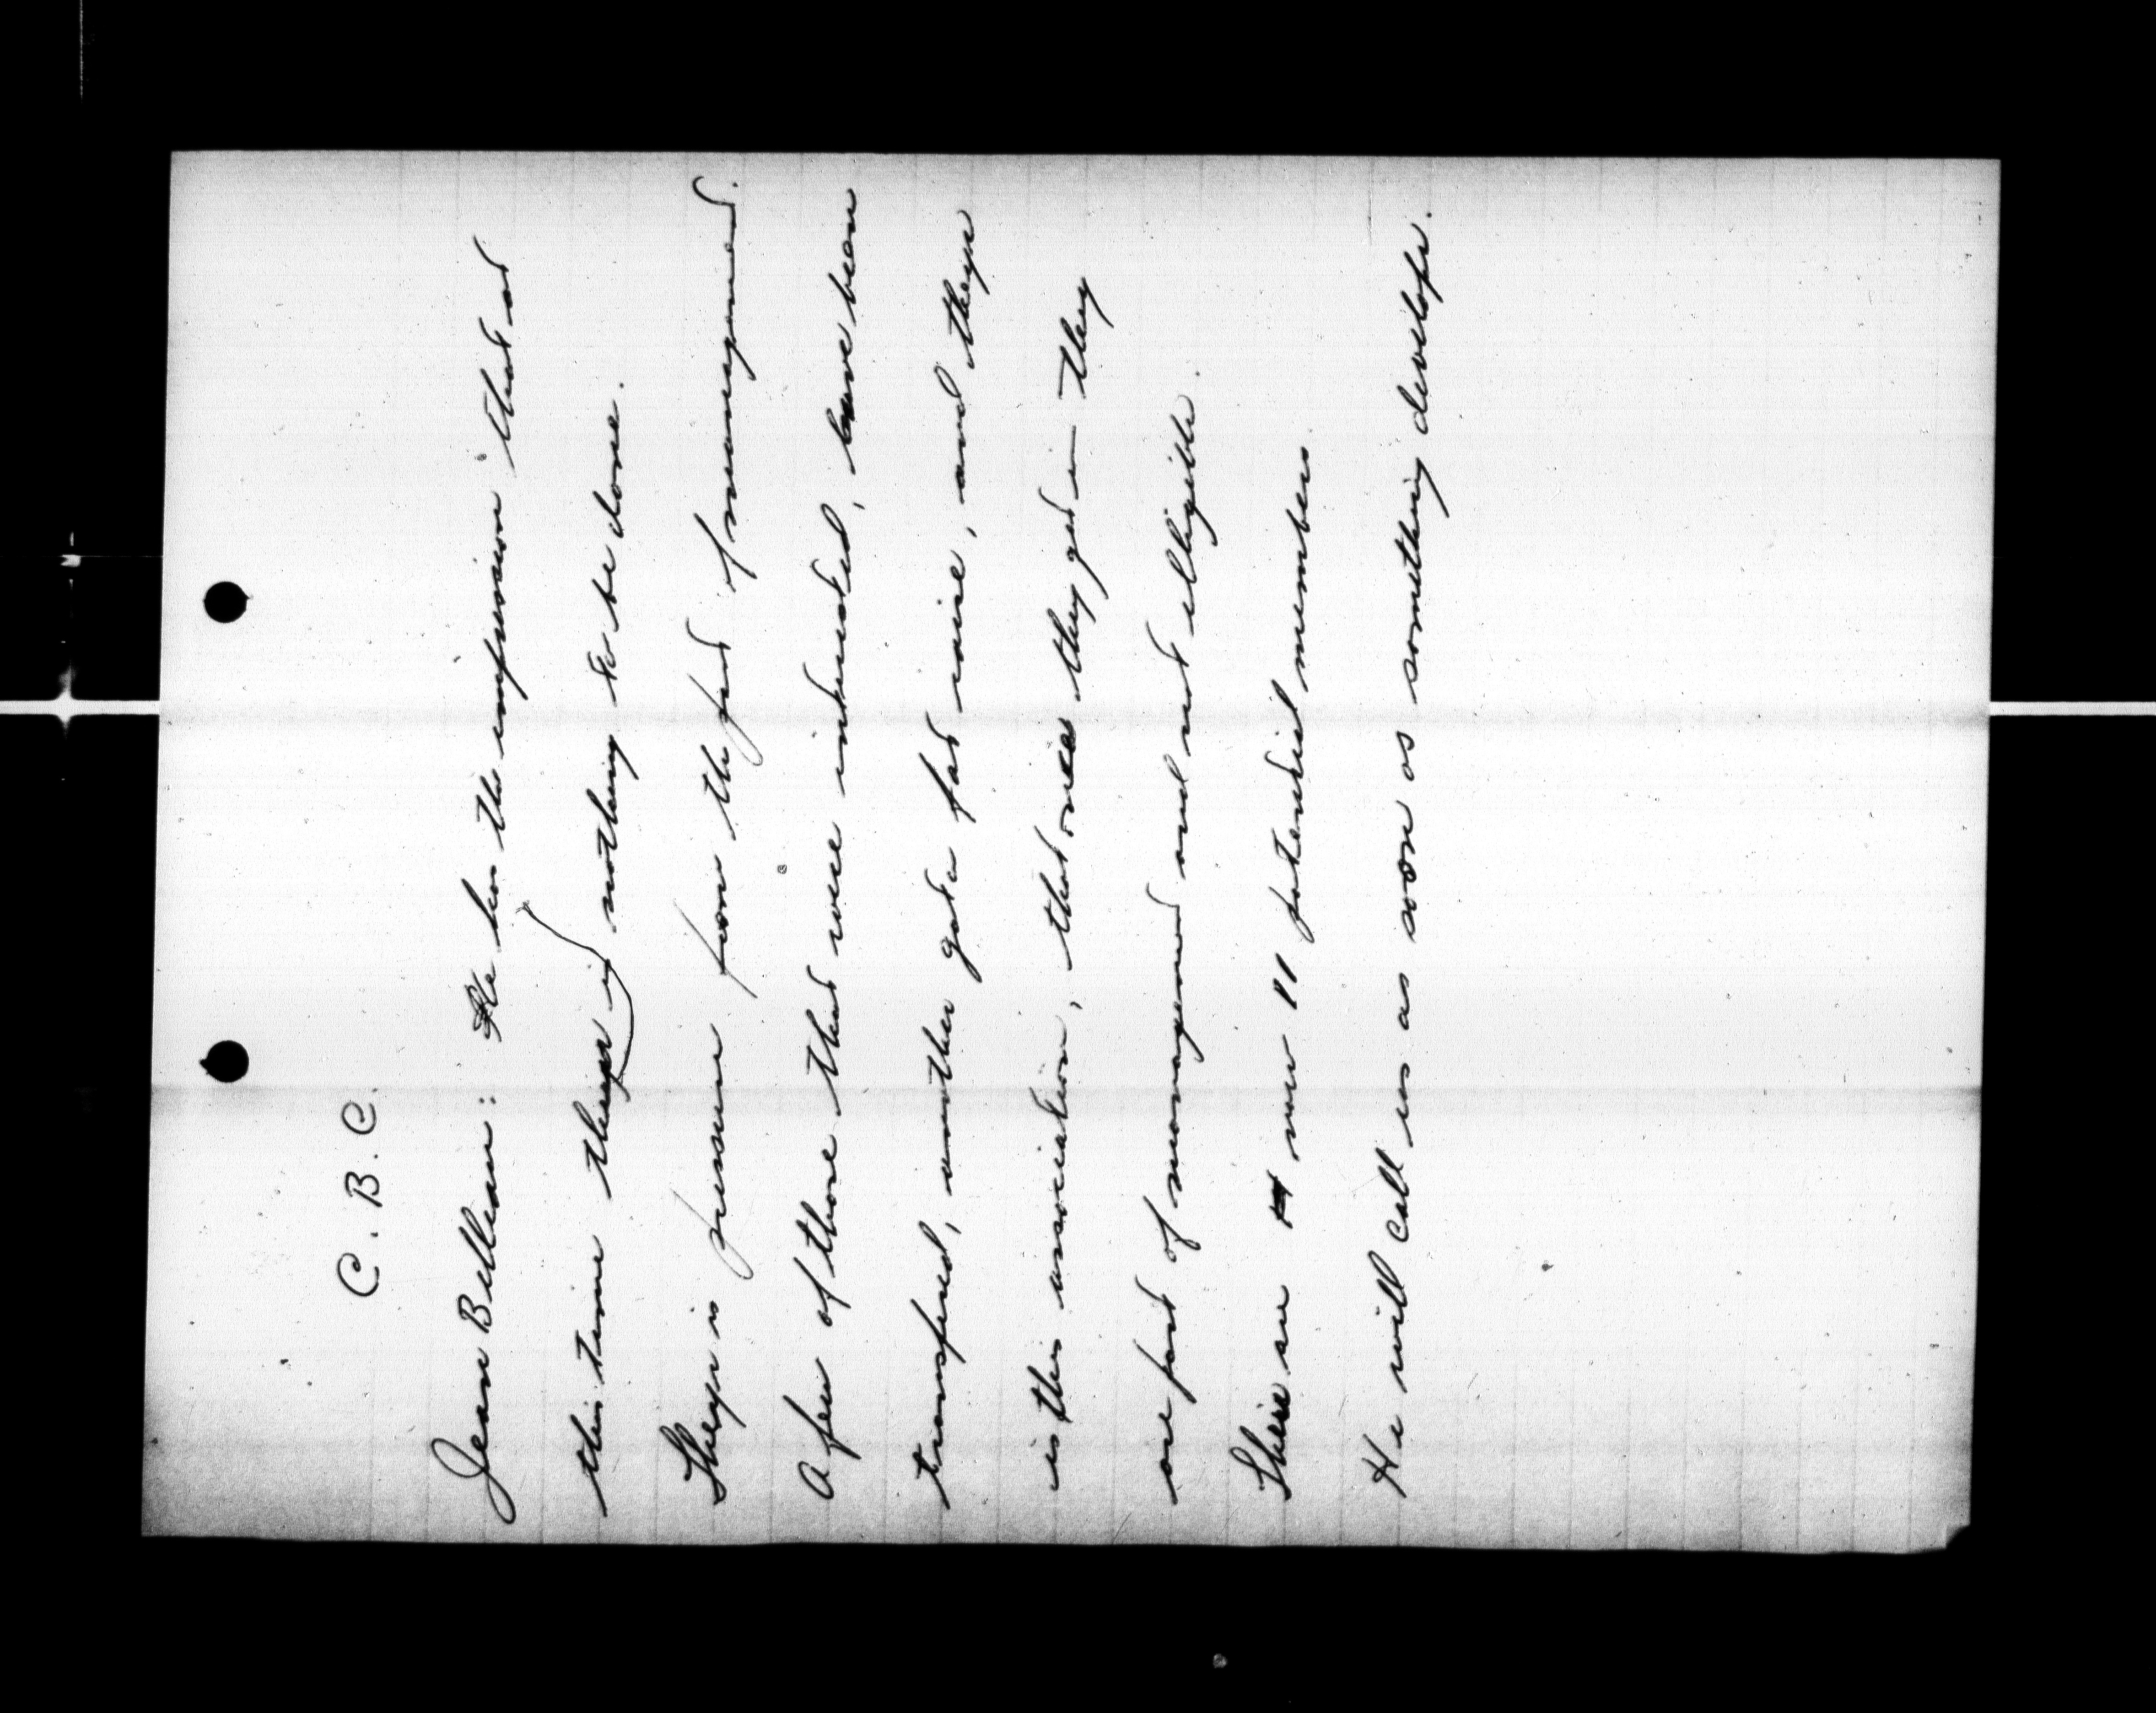 C. B. C.
Jean Belleau: He has the impression that at
this time theyr is nothing to be done.
Theyr is pressure from the part of management.
A few of those that were interested, have been
transfered, another got a fat raise, and theyr
is this association, that once they get in they
are part of management and not elligible.
There are now 11 potential members
He will call us as soon as something develops.